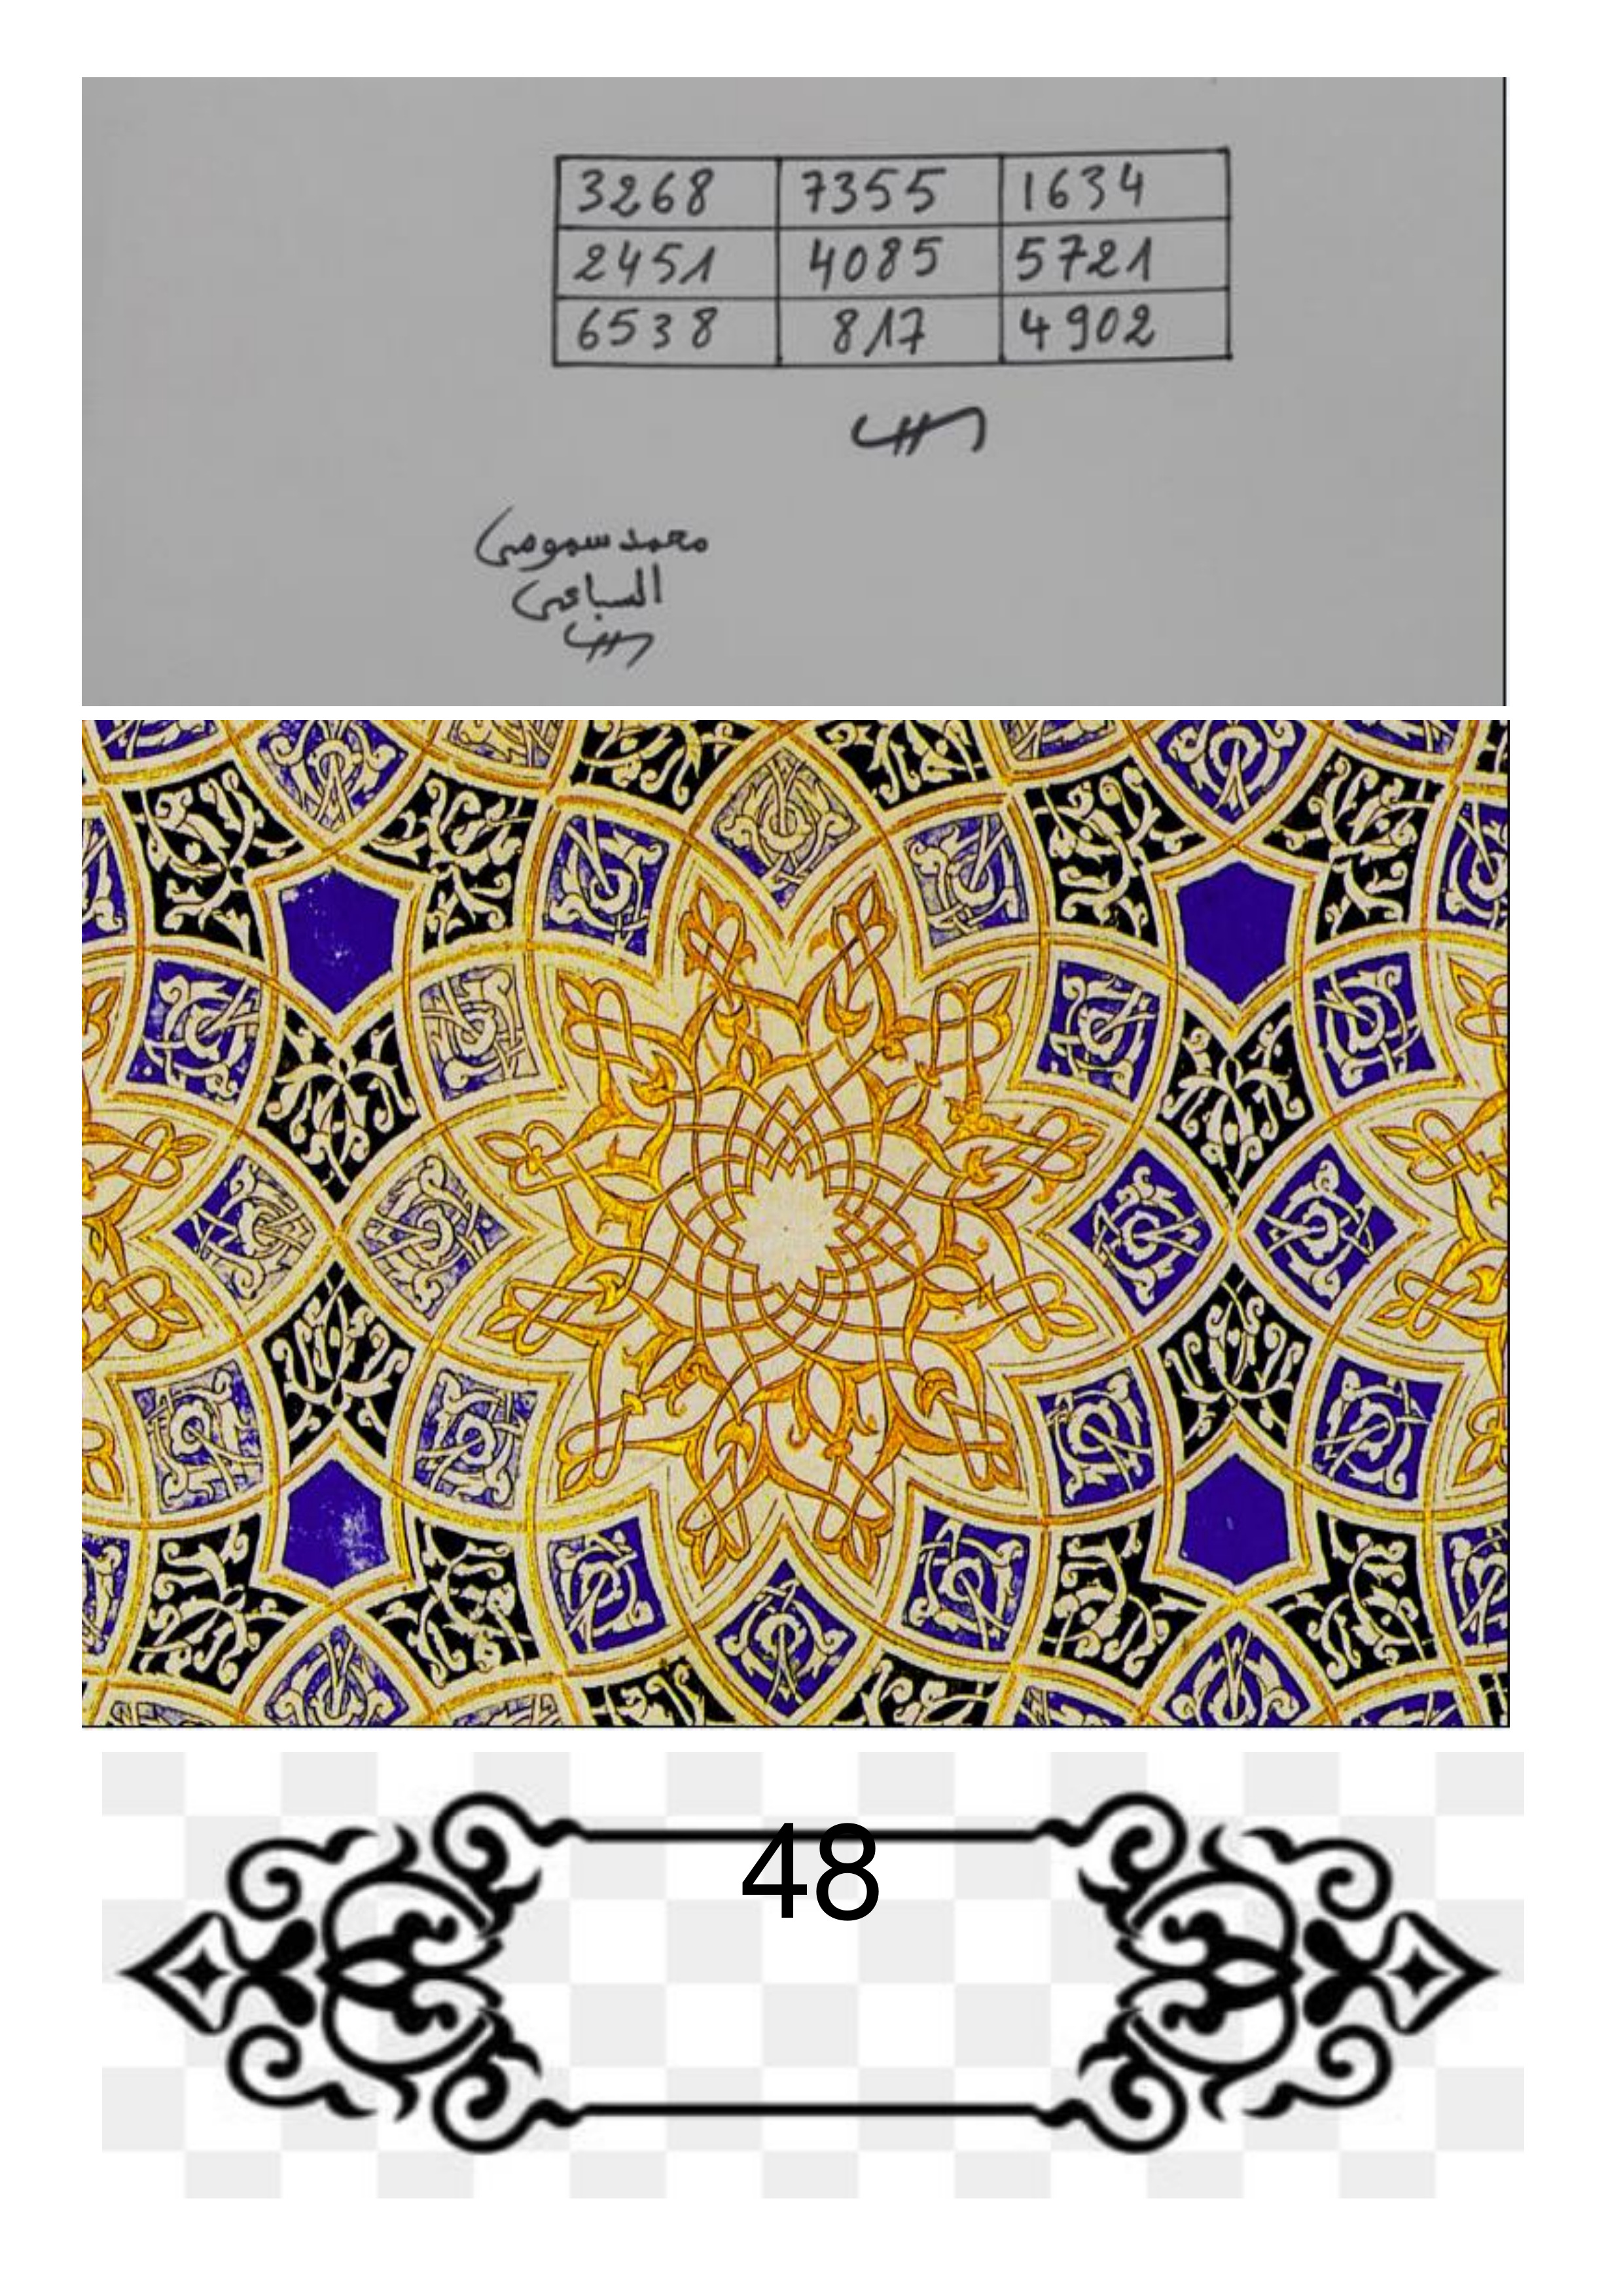 3268 7355 1634
2451 4085 5721
6538 817 4902
محمد سموصي
السباعي
48